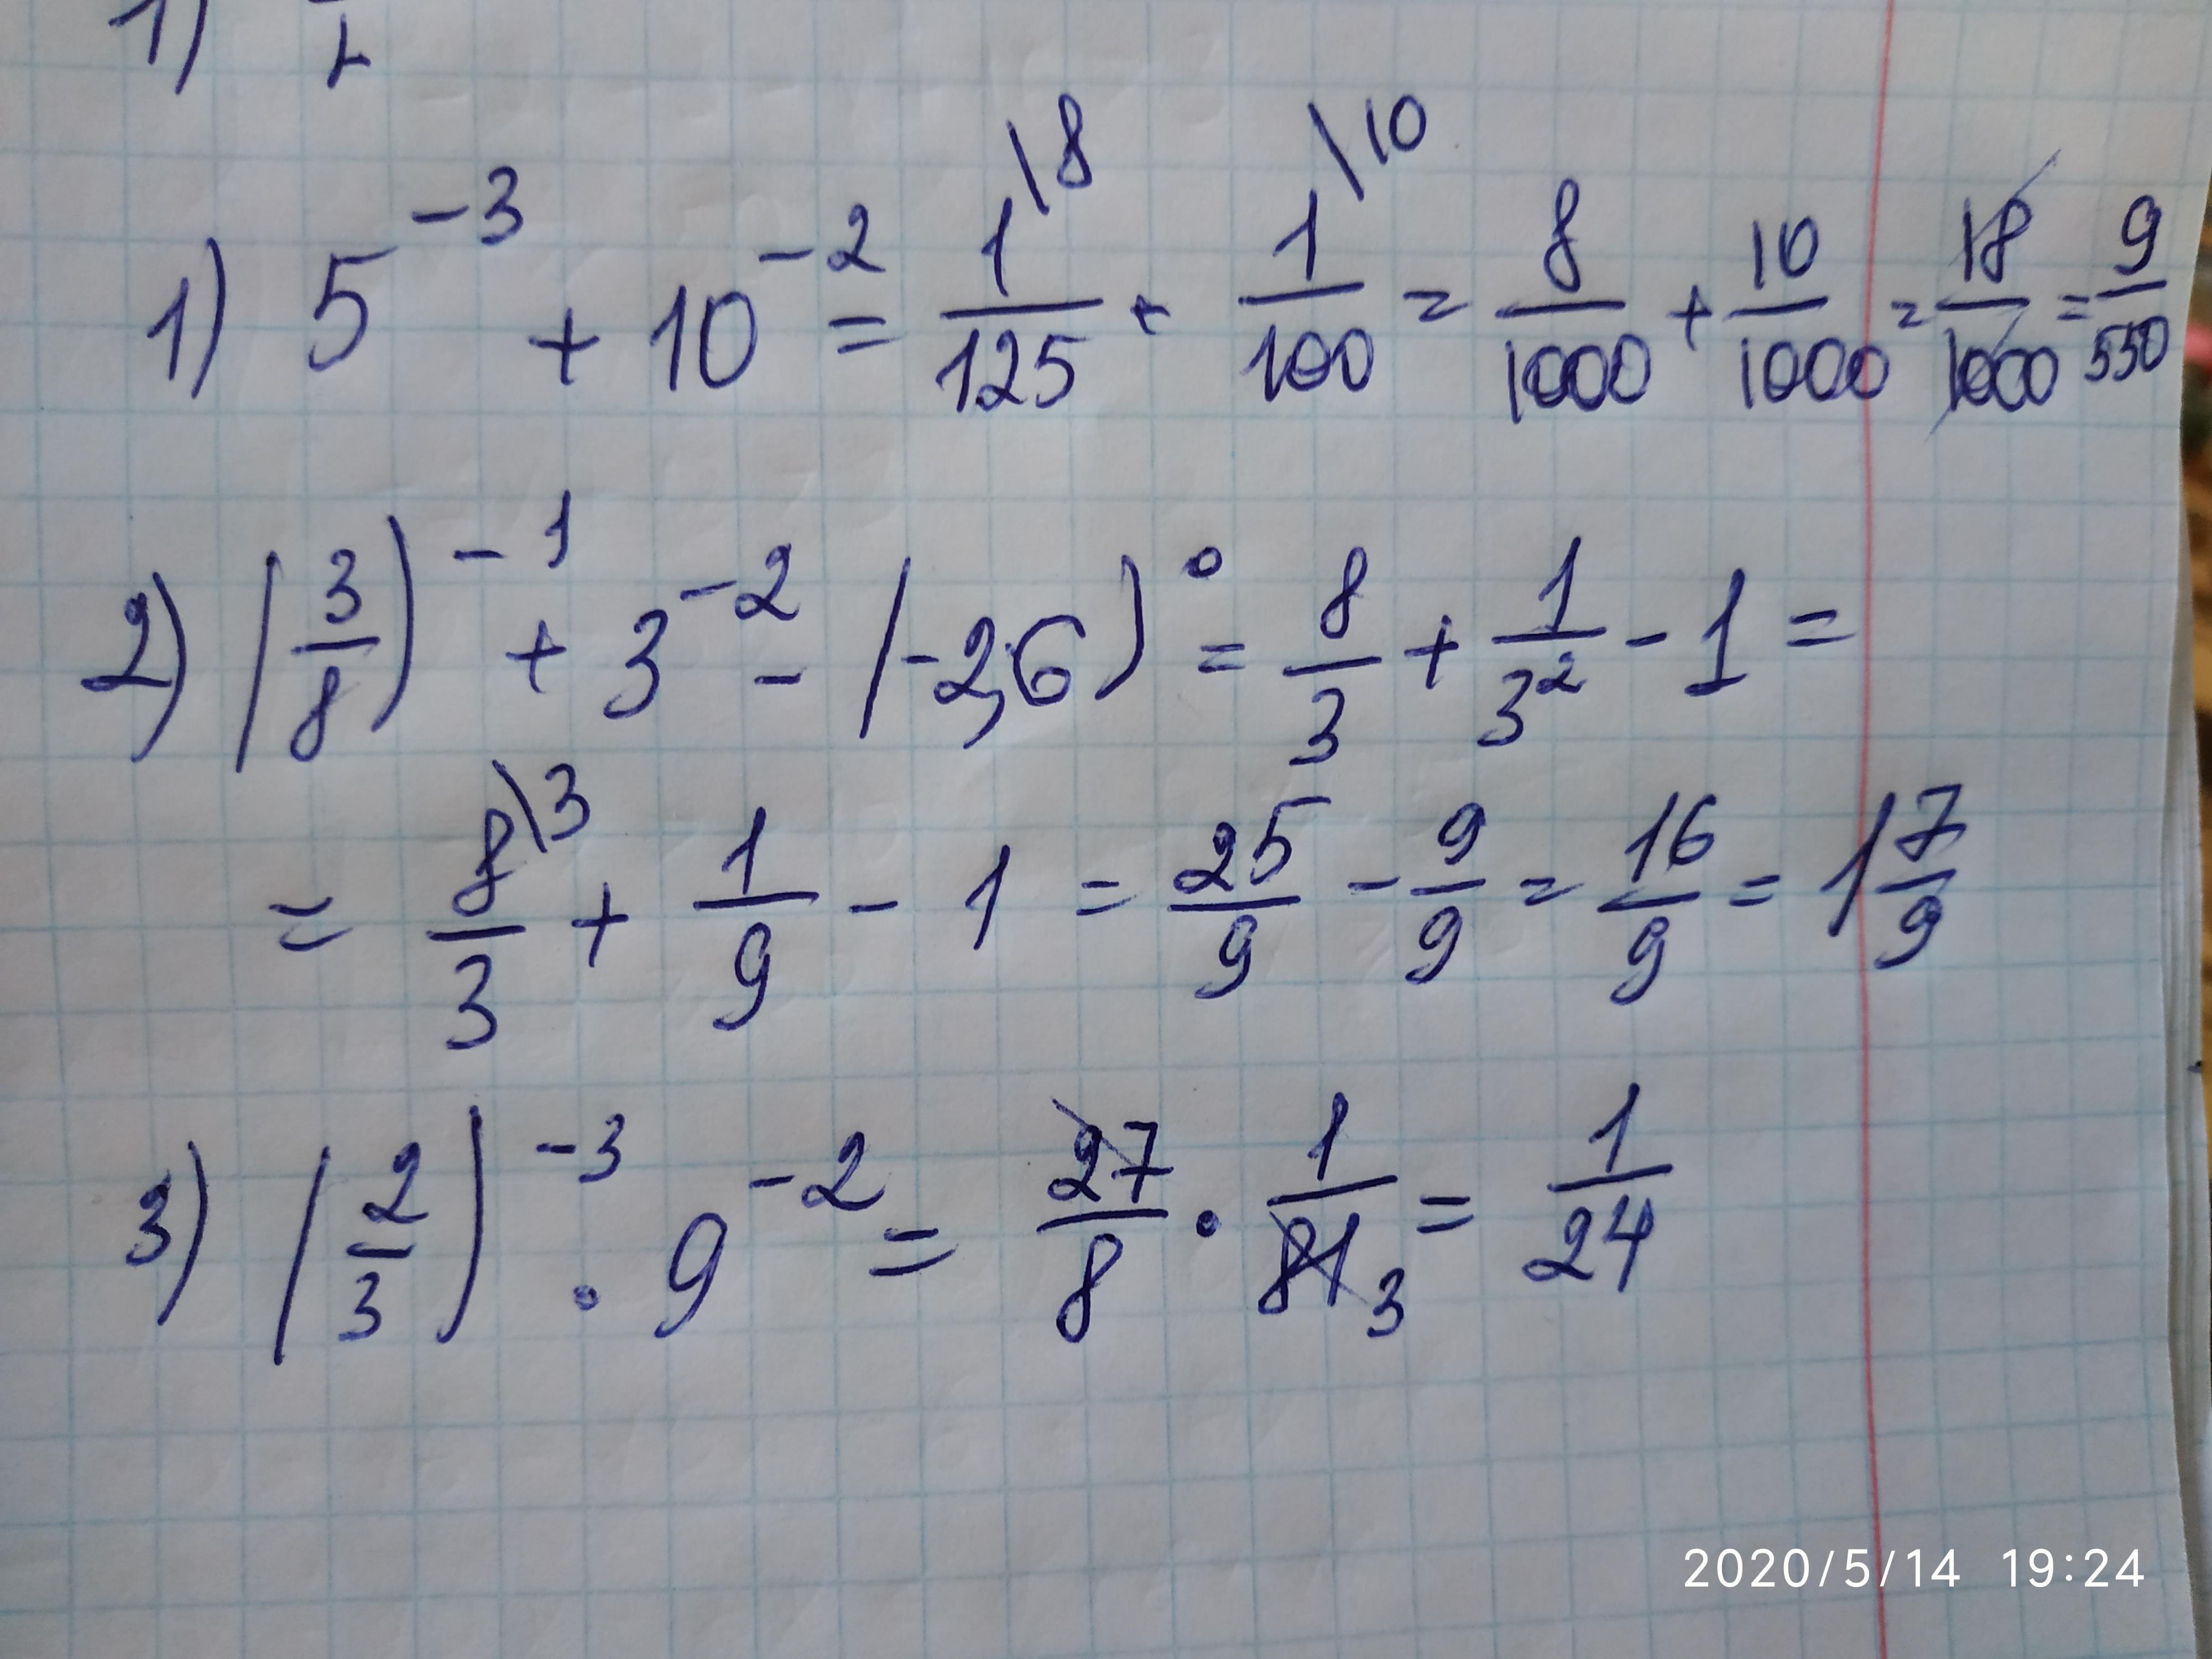 1)
1) 5⁻³ + 10⁻² = 1\8/125 + 1\10/100 = 8/1000 + 10/1000 = 18/1000 = 9/550
2) (3/8)⁻¹ + 3⁻² - (-2,6)⁰ = 8/3 + 1/3² - 1 =
= 8\3/3 + 1/9 - 1 = 25/9 - 9/9 = 16/9 = 1 7/9
3) (2/3)⁻³ · 9⁻² = 27/8 · 1/81 3 = 1/24
2020/5/14 19:24